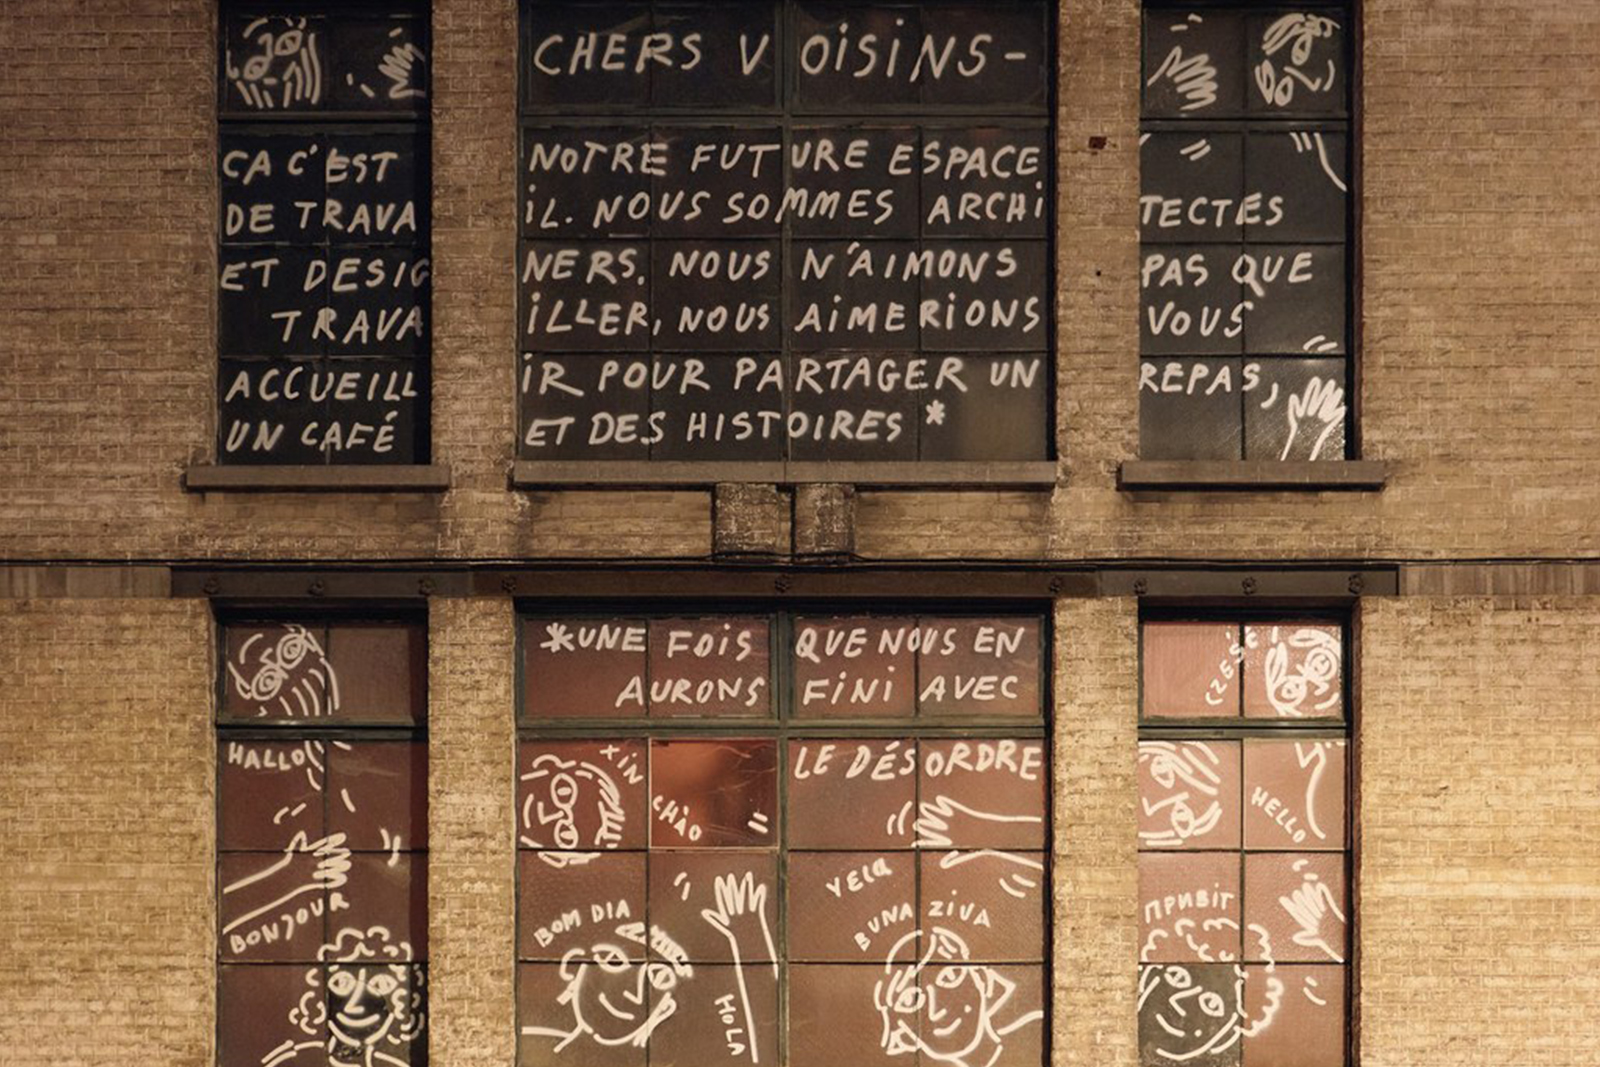 CHERS VOISINS-
ÇA C'EST NOTRE FUTURE ESPACE
DE TRAVAIL. NOUS SOMMES ARCHITECTES
ET DESIGNERS. NOUS N'AIMONS PAS QUE
TRAVAILLER, NOUS AIMERIONS VOUS
ACCUEILLIR POUR PARTAGER UN REPAS,
UN CAFÉ ET DES HISTOIRES *
*UNE FOIS QUE NOUS EN
AURONS FINI AVEC
LE DÉSORDRE
CZEŚĆ
HALLO
XIN
CHÀO
HELLO
YELA
BONJOUR
BOM DIA
BUNA ZIUA
ПРИВІТ
HOLA